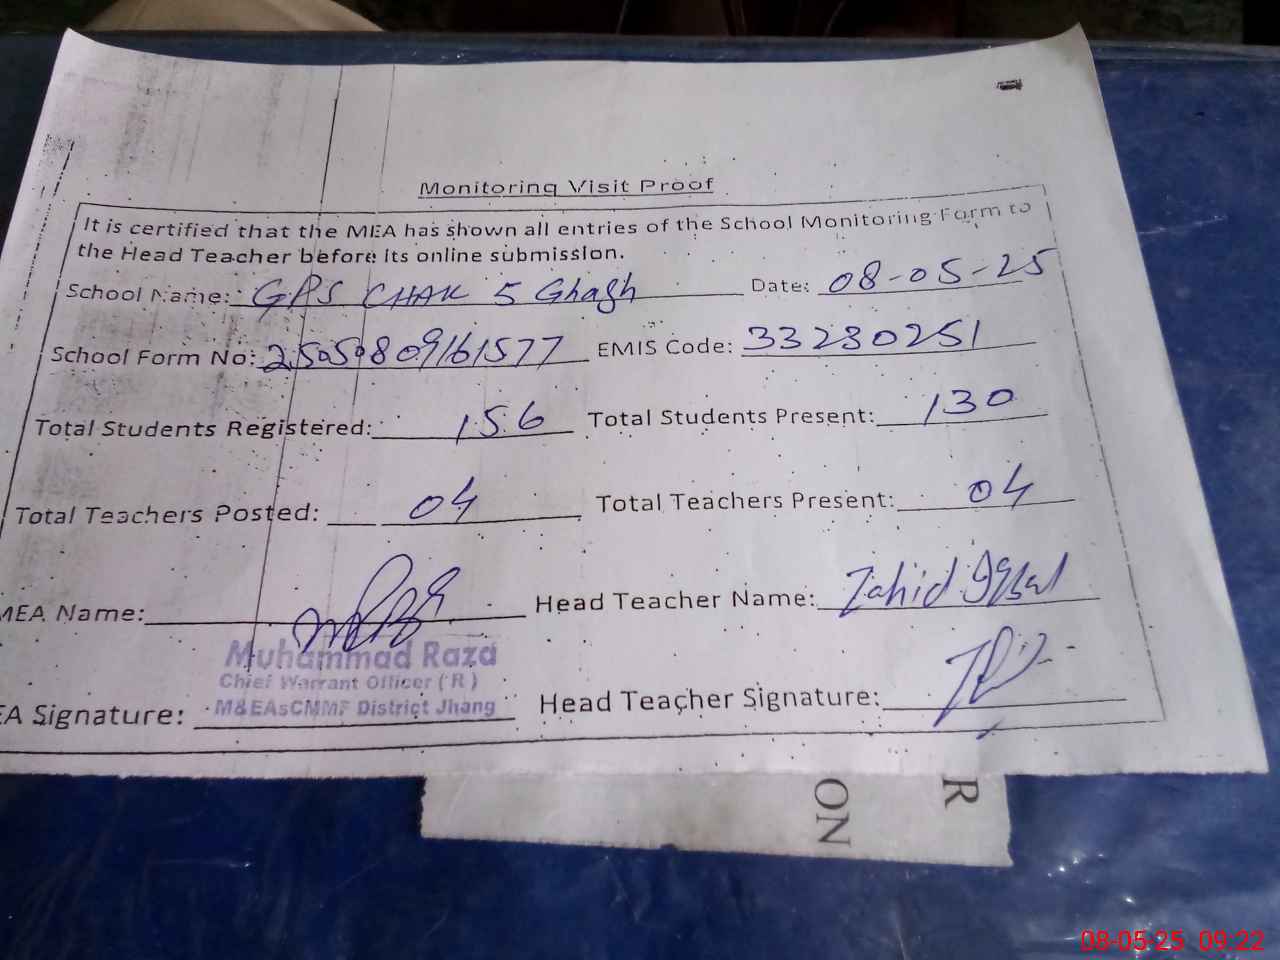 Monitoring Visit Proof
It is certified that the MEA has shown all entries of the School Monitoring Form to
the Head Teacher before its online submission.
School Name: GPS CHAK 5 Ghagh Date: 08-05-25
School Form No: 25050809161577 EMIS Code: 33230251
Total Students Registered: 156 Total Students Present: 130
Total Teachers Posted: 04 Total Teachers Present: 04
MEA Name: Head Teacher Name: Zahid Iqbal
Muhammad Raza
Chief Warrant Officer (R)
EA Signature: M&EAsCMMF District Jhang Head Teacher Signature:
R
ON
08-05-25 09:22